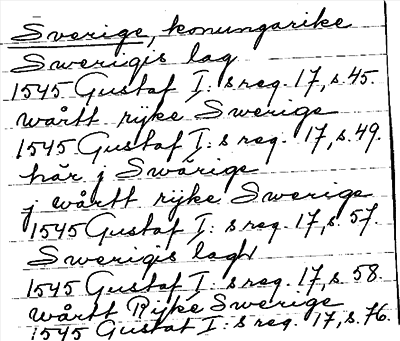 Sverige, konungarike
Swerigis lag
1545 Gustaf I: s reg. 17, s. 45.
wårtt rÿke Swerige
1545 Gustaf I: s reg. 17, s. 49.
här j Swärige
j wårtt rijke Swerige
1545 Gustaf I: s reg. 17, s. 57.
Swerigis lagh
1545 Gustaf I: s reg. 17, s. 58.
wårtt Rijke Swerige
1545 Gustaf I: s reg. 17, s. 76.